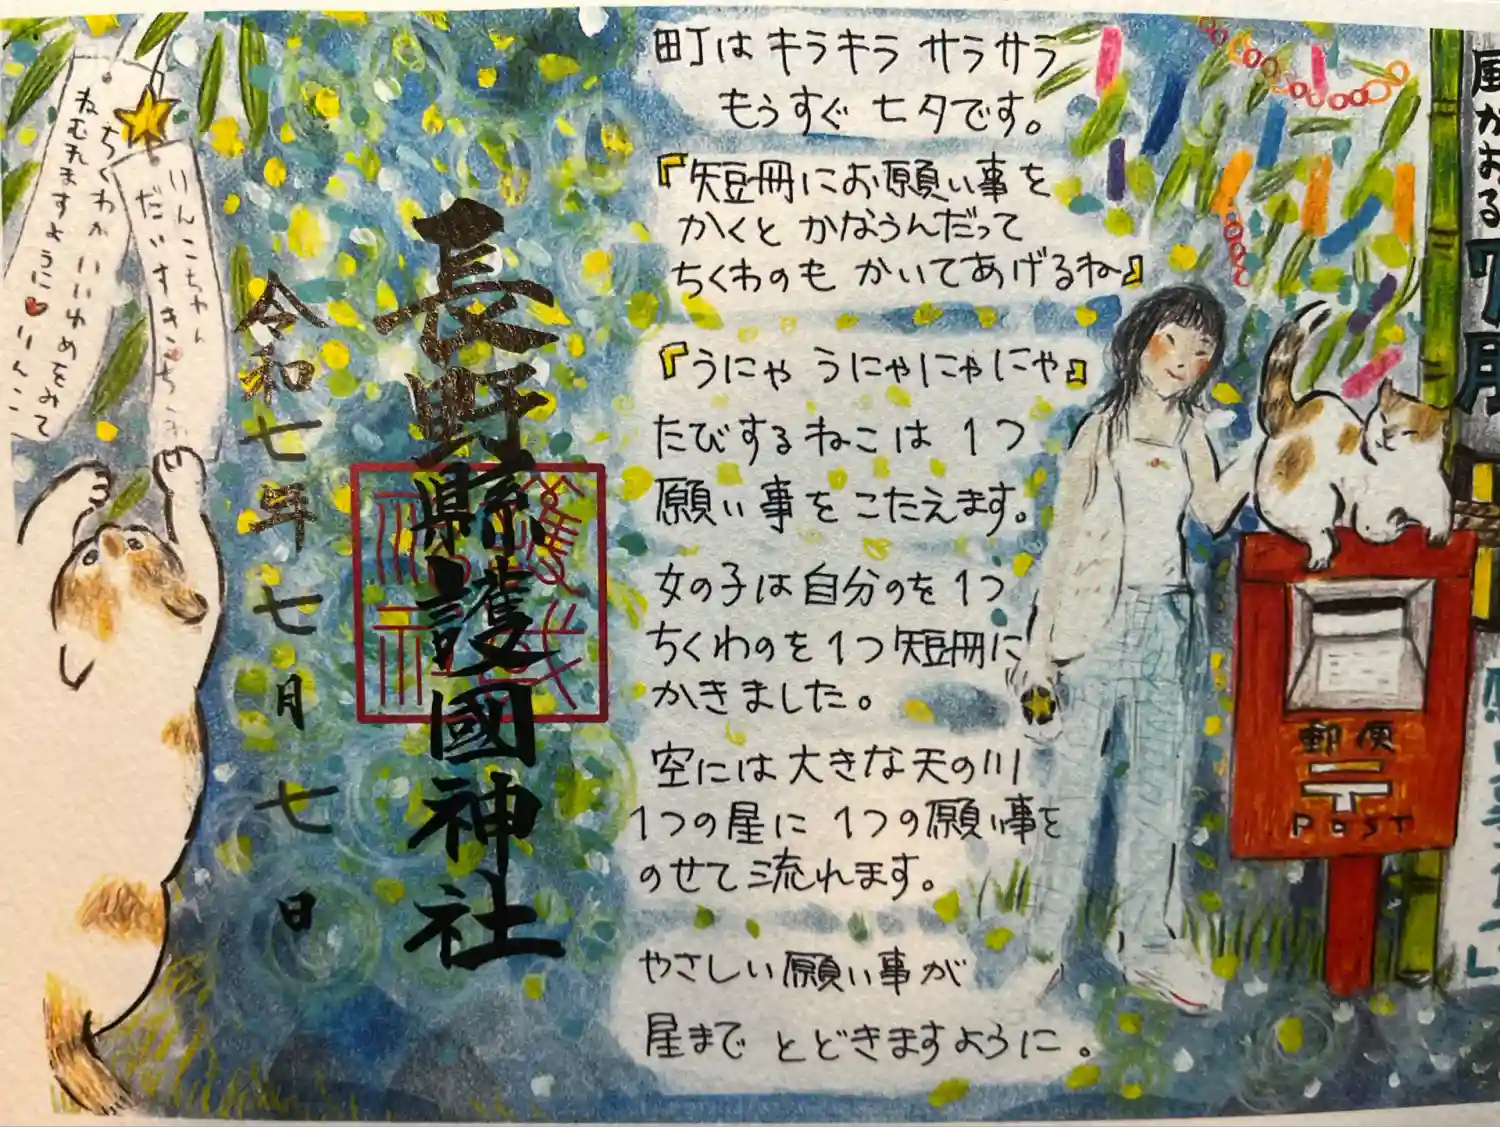 町は キラキラ サラサラ
もうすぐ 七夕です。
『短冊にお願い事を
かくと かなうんだって
ちくわのも かいてあげるね』
『うにゃ うにゃにゃにゃ』
たびするねこは 1つ
願い事を こたえます。
女の子は 自分のを 1つ
ちくわのを 1つ 短冊に
かきました。
空には 大きな 天の川
1つの星に 1つの願い事を
のせて 流れます。
やさしい 願い事が
星まで とどきますように。
長野縣護國神社
令和七年七月七日
りんこちゃん
だいすき
ちくわが いいゆめをみて
ねむれますように♥りんこ
風かおる7月
郵便
〒
POST